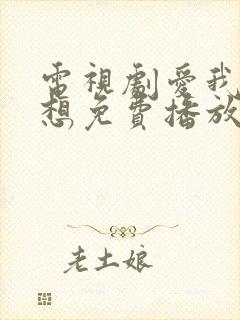 電視劇愛我
想免費播放
老土娘